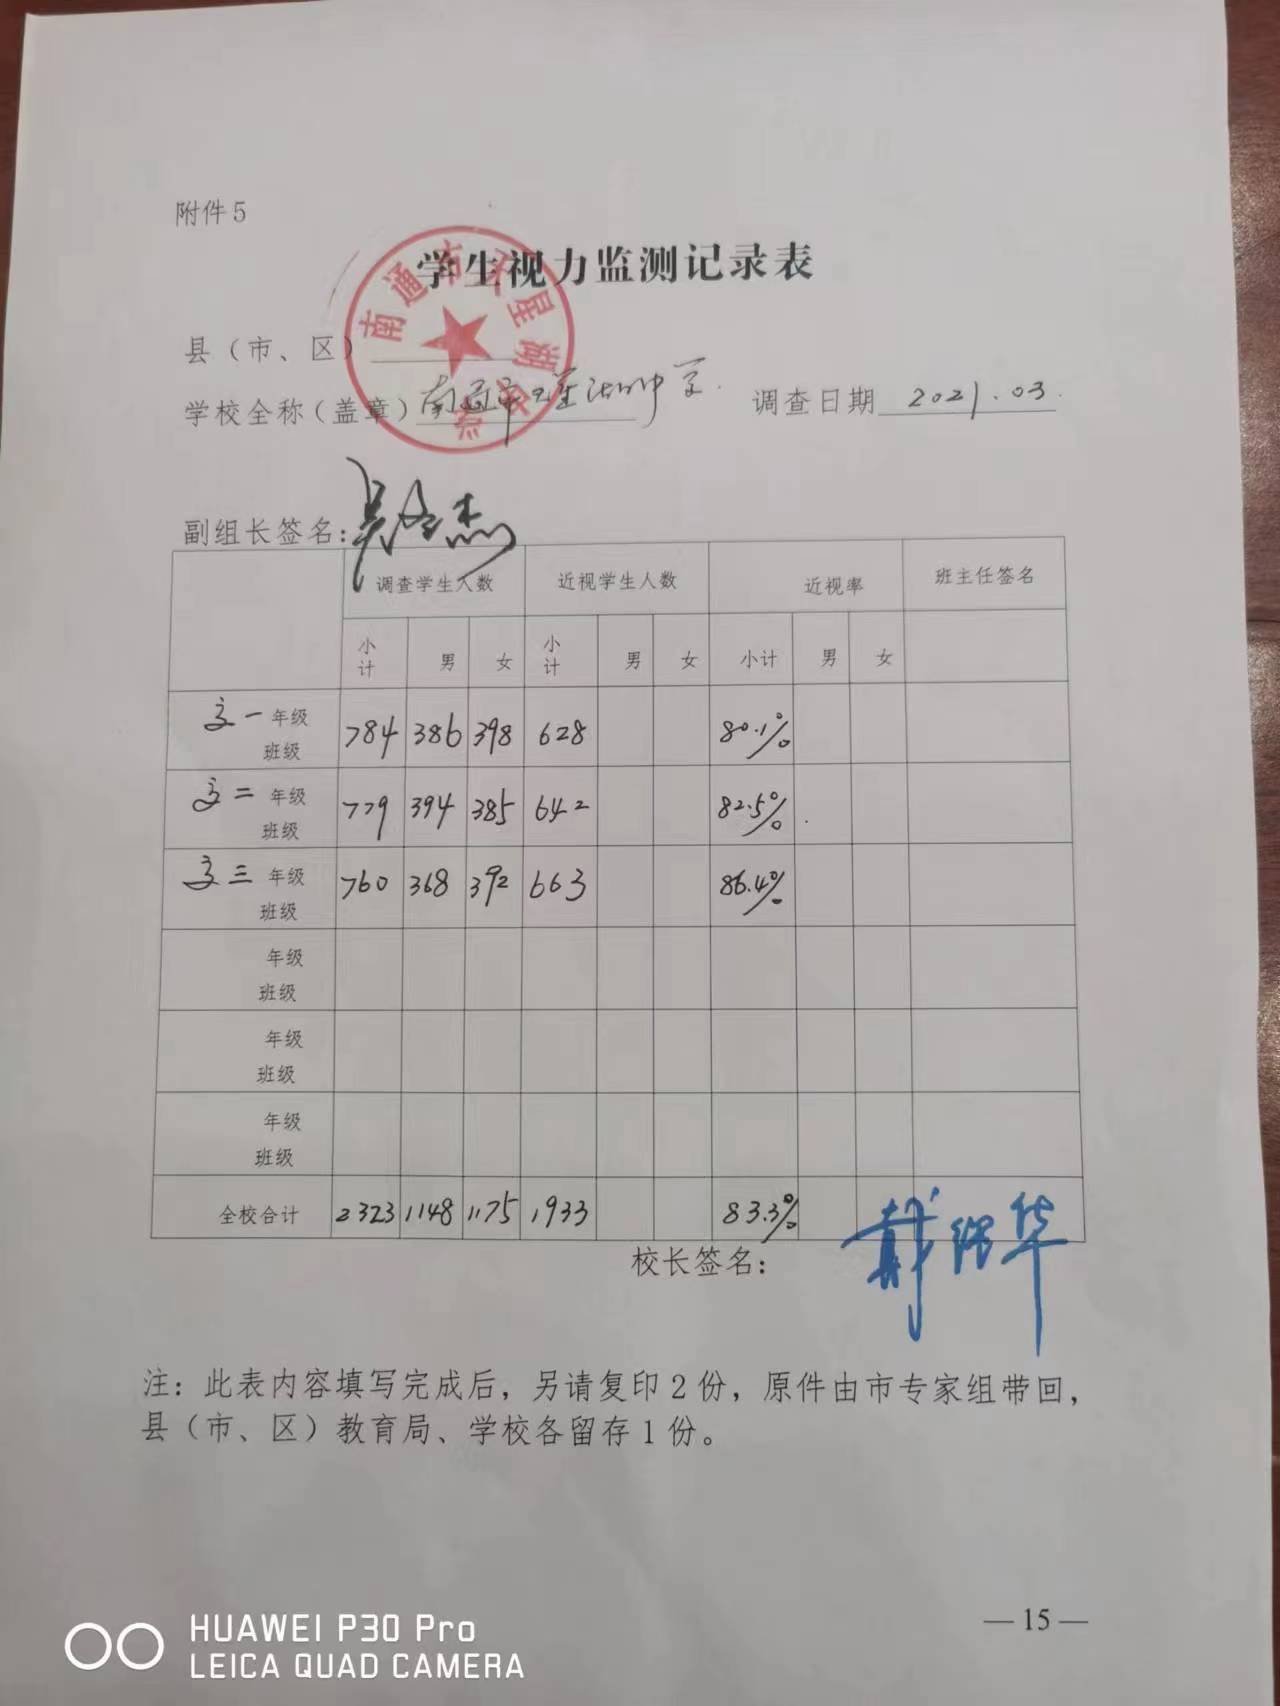 附件5
学生视力监测记录表
南通市天星湖中学
县（市、区）
学校全称（盖章）南通市天星湖中学 调查日期 2021.03.
副组长签名：
调查学生人数 近视学生人数 近视率 班主任签名
小计 男 女 小计 男 女 小计 男 女
高一年级 784 386 398 628 80.1%
班级
高二年级 779 394 385 642 82.5%
班级
高三年级 760 368 392 663 86.4%
班级
年级
班级
年级
班级
年级
班级
全校合计 2323 1148 1175 1933 83.3%
校长签名：
注：此表内容填写完成后，另请复印2份，原件由市专家组带回，
县（市、区）教育局、学校各留存1份。
— 15 —
HUAWEI P30 Pro
LEICA QUAD CAMERA